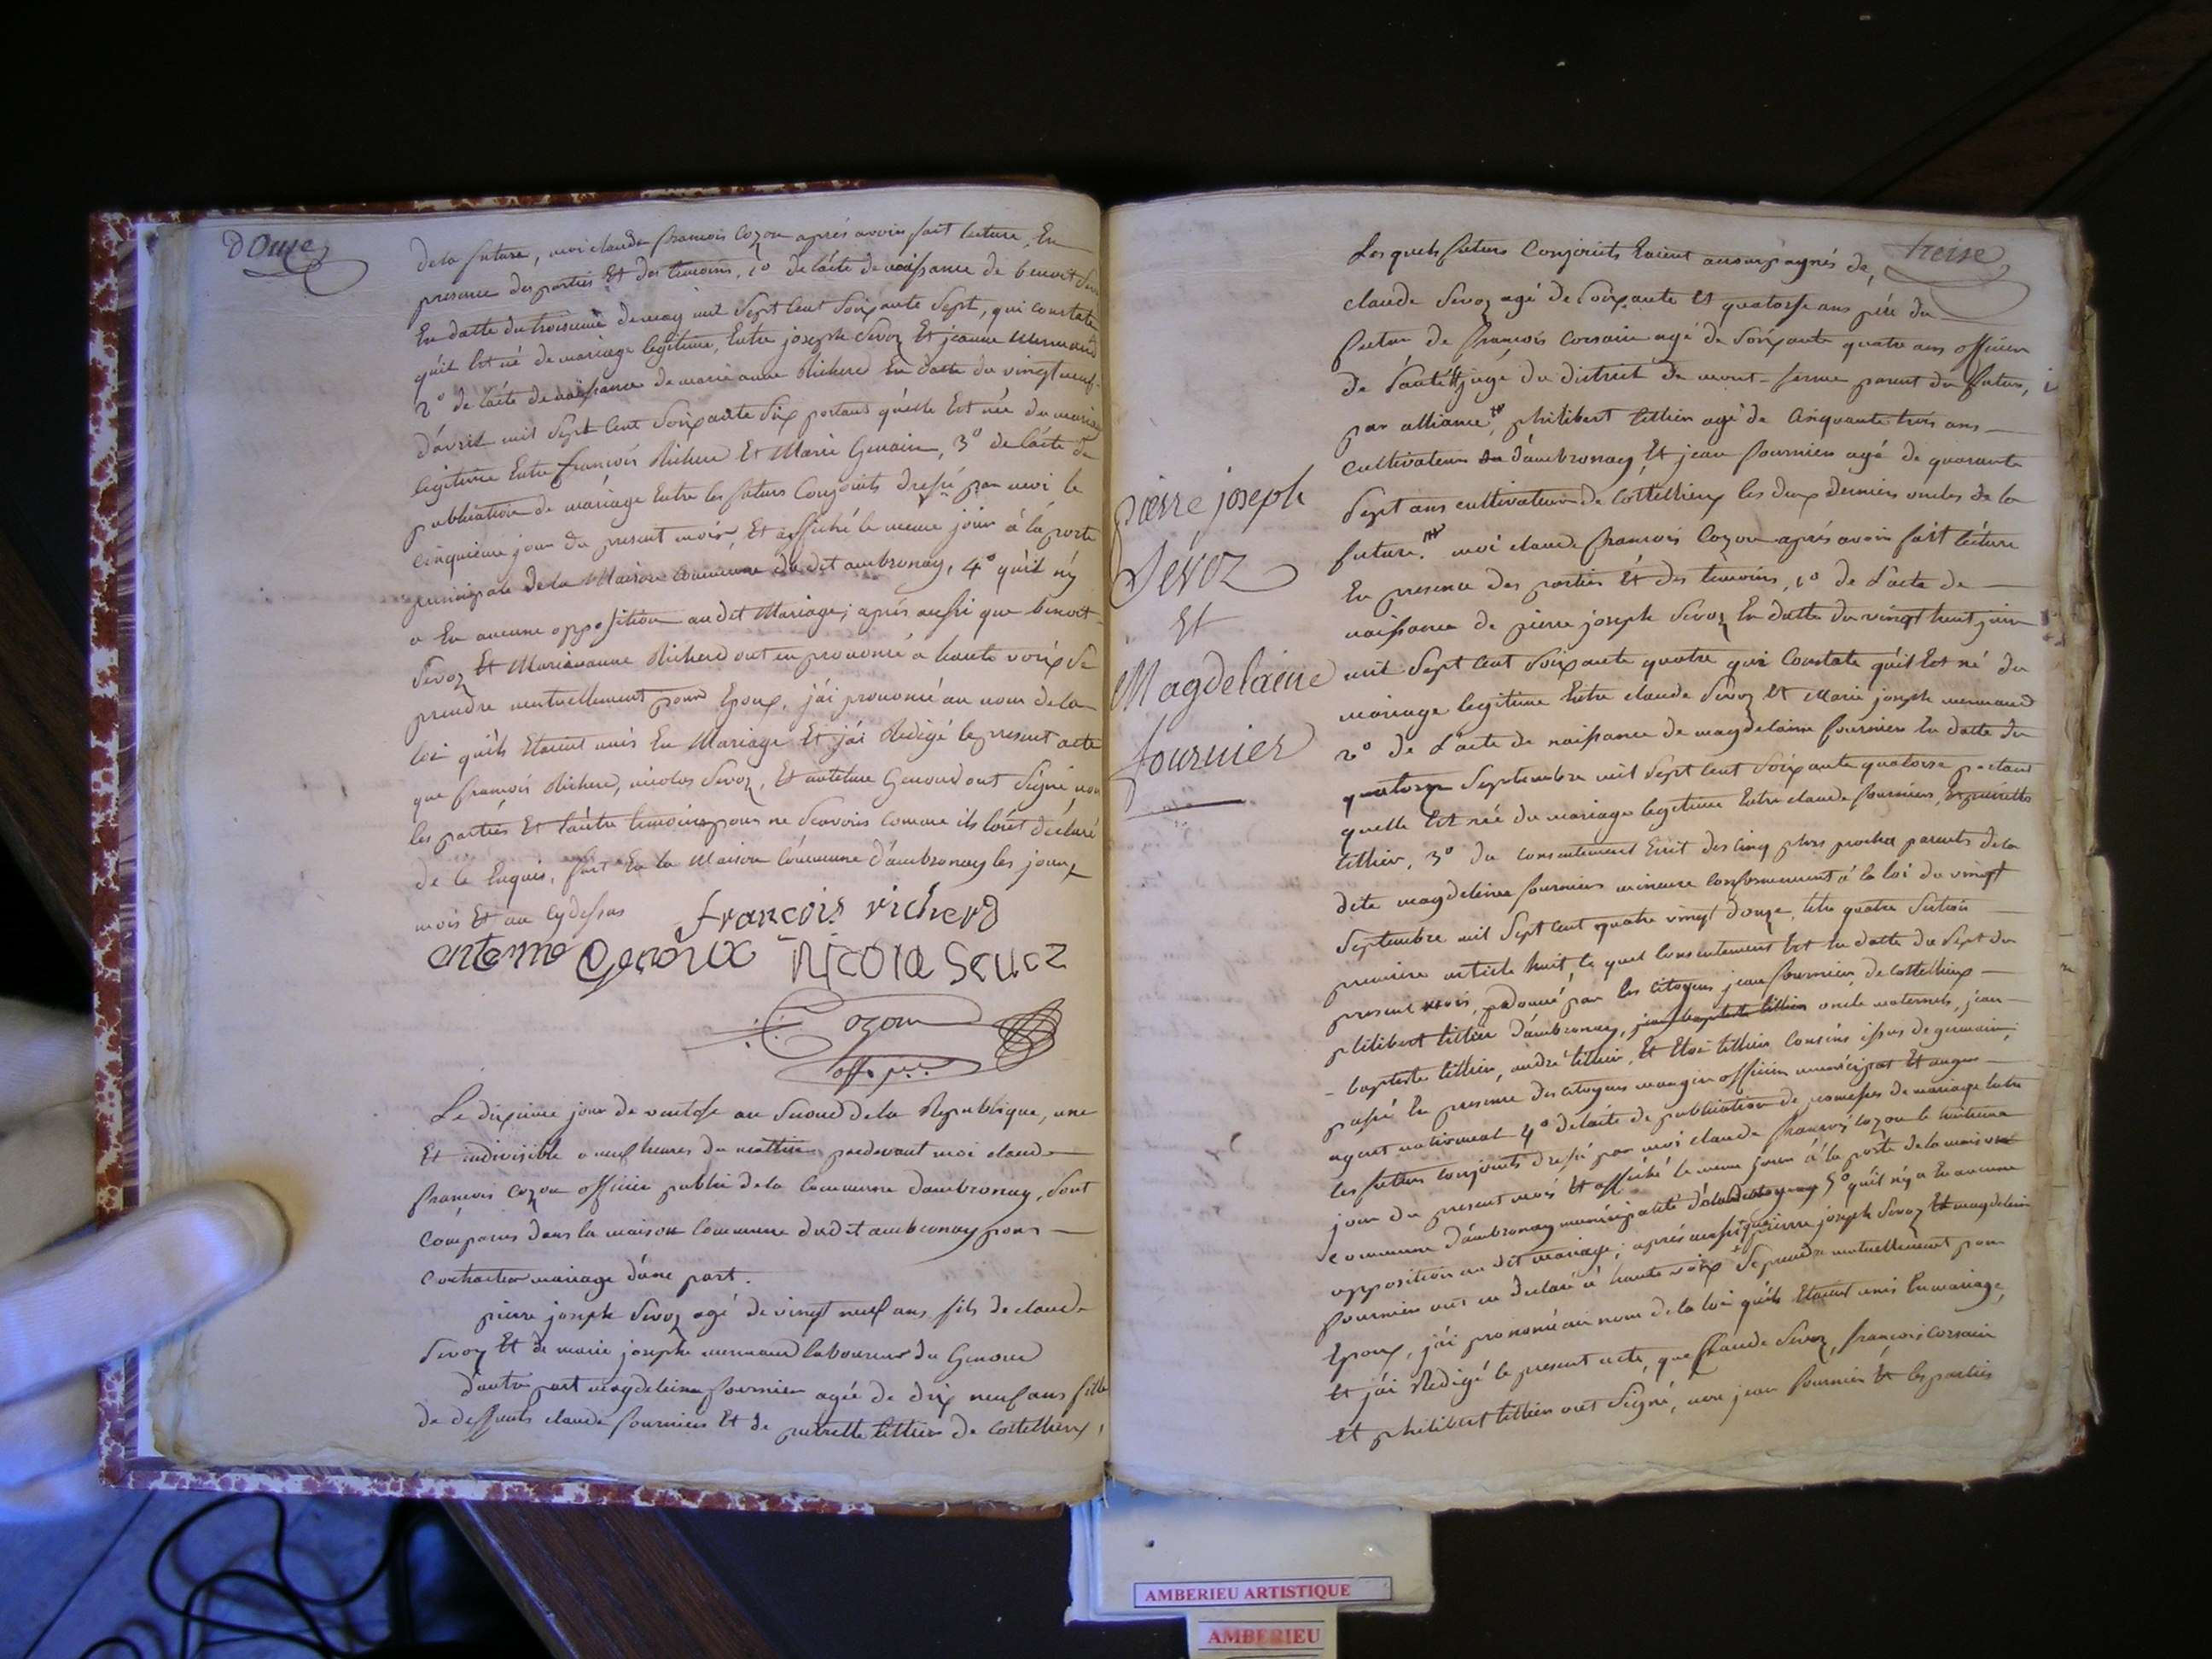 dOuze
dela future, moi claude francois Cozon aprés avoir fait lecture, En
presence des parties Et des temoins, 1º de lácte de naissance de benoit Sevoz
En datte du troisieme de may mil Sept Cent Soixante Sept, qui constate
quil Est né de mariage legitime, Entre joseph Sevoz Et jeanne mermand
2º de lácte de naissance de marie anne Richerd En datte du vingt neuf
dávril mil Sept Cent Soixante Six portant quelle Est née du mariage
legitime Entre françois Richerd Et Marie Genain, 3º de lácte de
publication de mariage Entre les futurs Conjoints dressé par moi le
cinquieme jour du present mois, Et affiché le meme jour á la porte
principale de la Maison commune du dit ambronay, 4º quil ny
a Eu aucune opposition au dit Mariage; aprés aussi que benoit
Sevoz Et Marieanne Richerd ont eu prononcé a haute voix de
prendre mutuellement pour Epoux, jái prononcé au nom dela
loi quils Etoient unis En Mariage Et jái Redigé le present acte
que françois Richerd, nicolas Sevoz, Et antelme Genoud ont Signé non
les parties Et láutre temoins pour ne Scavoir comme ils lónt declaré
de ce Enquis, fait En la Maison Commune dámbronay les jour,
mois Et an cydessus
francois richerd
antermo Genoux Nicola Seuoz
Cozon
off. p.
Le dixieme jour de ventose an Second dela Republique, une
Et indivisible a neuf heures du mattin pardevant moi claude
francois Cozon officier public dela Commune dambronay, Sont
Comparus dans la maison Commune dudit ambronay pour
Contracter mariage dúne part.
pierre joseph Sevoz agé de vingt neuf ans fils de claude
Sevoz Et de marie josephe mermand laboureur du Genoud
dáutre part magdeleine fournier agée de dix neuf ans fille
de deffunts claude fournier Et de pierrette tillier de Cottelieux,
treise
Lesquels futurs Conjoints Etoient accompagnés de,
claude Sevoz agé de Soixante Et quatorse ans pére du
futur de françois Corsain agé de Soixante quatre ans officier
de Santé Et juge du district de mont-ferme parent du futur,
par alliance, philibert tillier agé de Cinquante trois ans
Cultivateur dámbronay, Et jean fournier agé de quarante
Sept ans cultivateur de Cottelieux les deux derniers oncles de la
future. moi claude francois Cozon aprés avoir fait lécture
En presence des parties Et des temoins, 1º de lácte de
naissance de pierre joseph Sevoz En datte du vingt huit juin
mil Sept Cent Soixante quatre qui Constate quil Est né du
mariage legitime Entre claude Sevoz Et Marie joseph mermand
2º de lácte de naissance de magdelaine fournier En datte du
quatorze Septembre mil Sept Cent Soixante quatorse portant
quelle Est née du mariage legitime Entre claude fournier, Et pierrette
tillier, 3º du consentement Ecrit des cinq plus proches parents dela
dite magdeleine fournier mineure Conformement á la loi du vingt
Septembre mil Sept Cent quatre vingt douze, titre quatre Section
premiere article huit, le quel Consentement Est En datte du Sept du
present mois, donné par les citoyens jean fournier, de Cottelieux
philibert tillier dambronay, jean baptiste tillier oncle maternels, jean
baptiste tillier, andré tillier, Et Eloi tillier Cousins issus de germain;
passé En presence des citoyens mangin officier municipal Et auger
agent national 4º de lácte de publication de promesses de mariage Entre
les futurs Conjoints dressé par moi claude francois Cozon le huitieme
jour du present mois Et affiché le meme jour á la porte dela maison
Commune dámbronay 5º quil ny a Eu aucune
opposition au dit mariage; aprés aussi que pierre joseph Sevoz Et magdeleine
fournier ont eu declaré á haute voix de prendre mutuellement pour
Epoux, jái prononcé au nom de la loi quils Etoient unis En mariage,
Et jái Redigé le present acte, que Claude Sevoz, françois Corsain
Et philibert tillier ont Signé, non jean fournier Et les parties
pierre joseph
Sevoz
Et
Magdelaine
fournier
AMBERIEU ARTISTIQUE
AMBERIEU